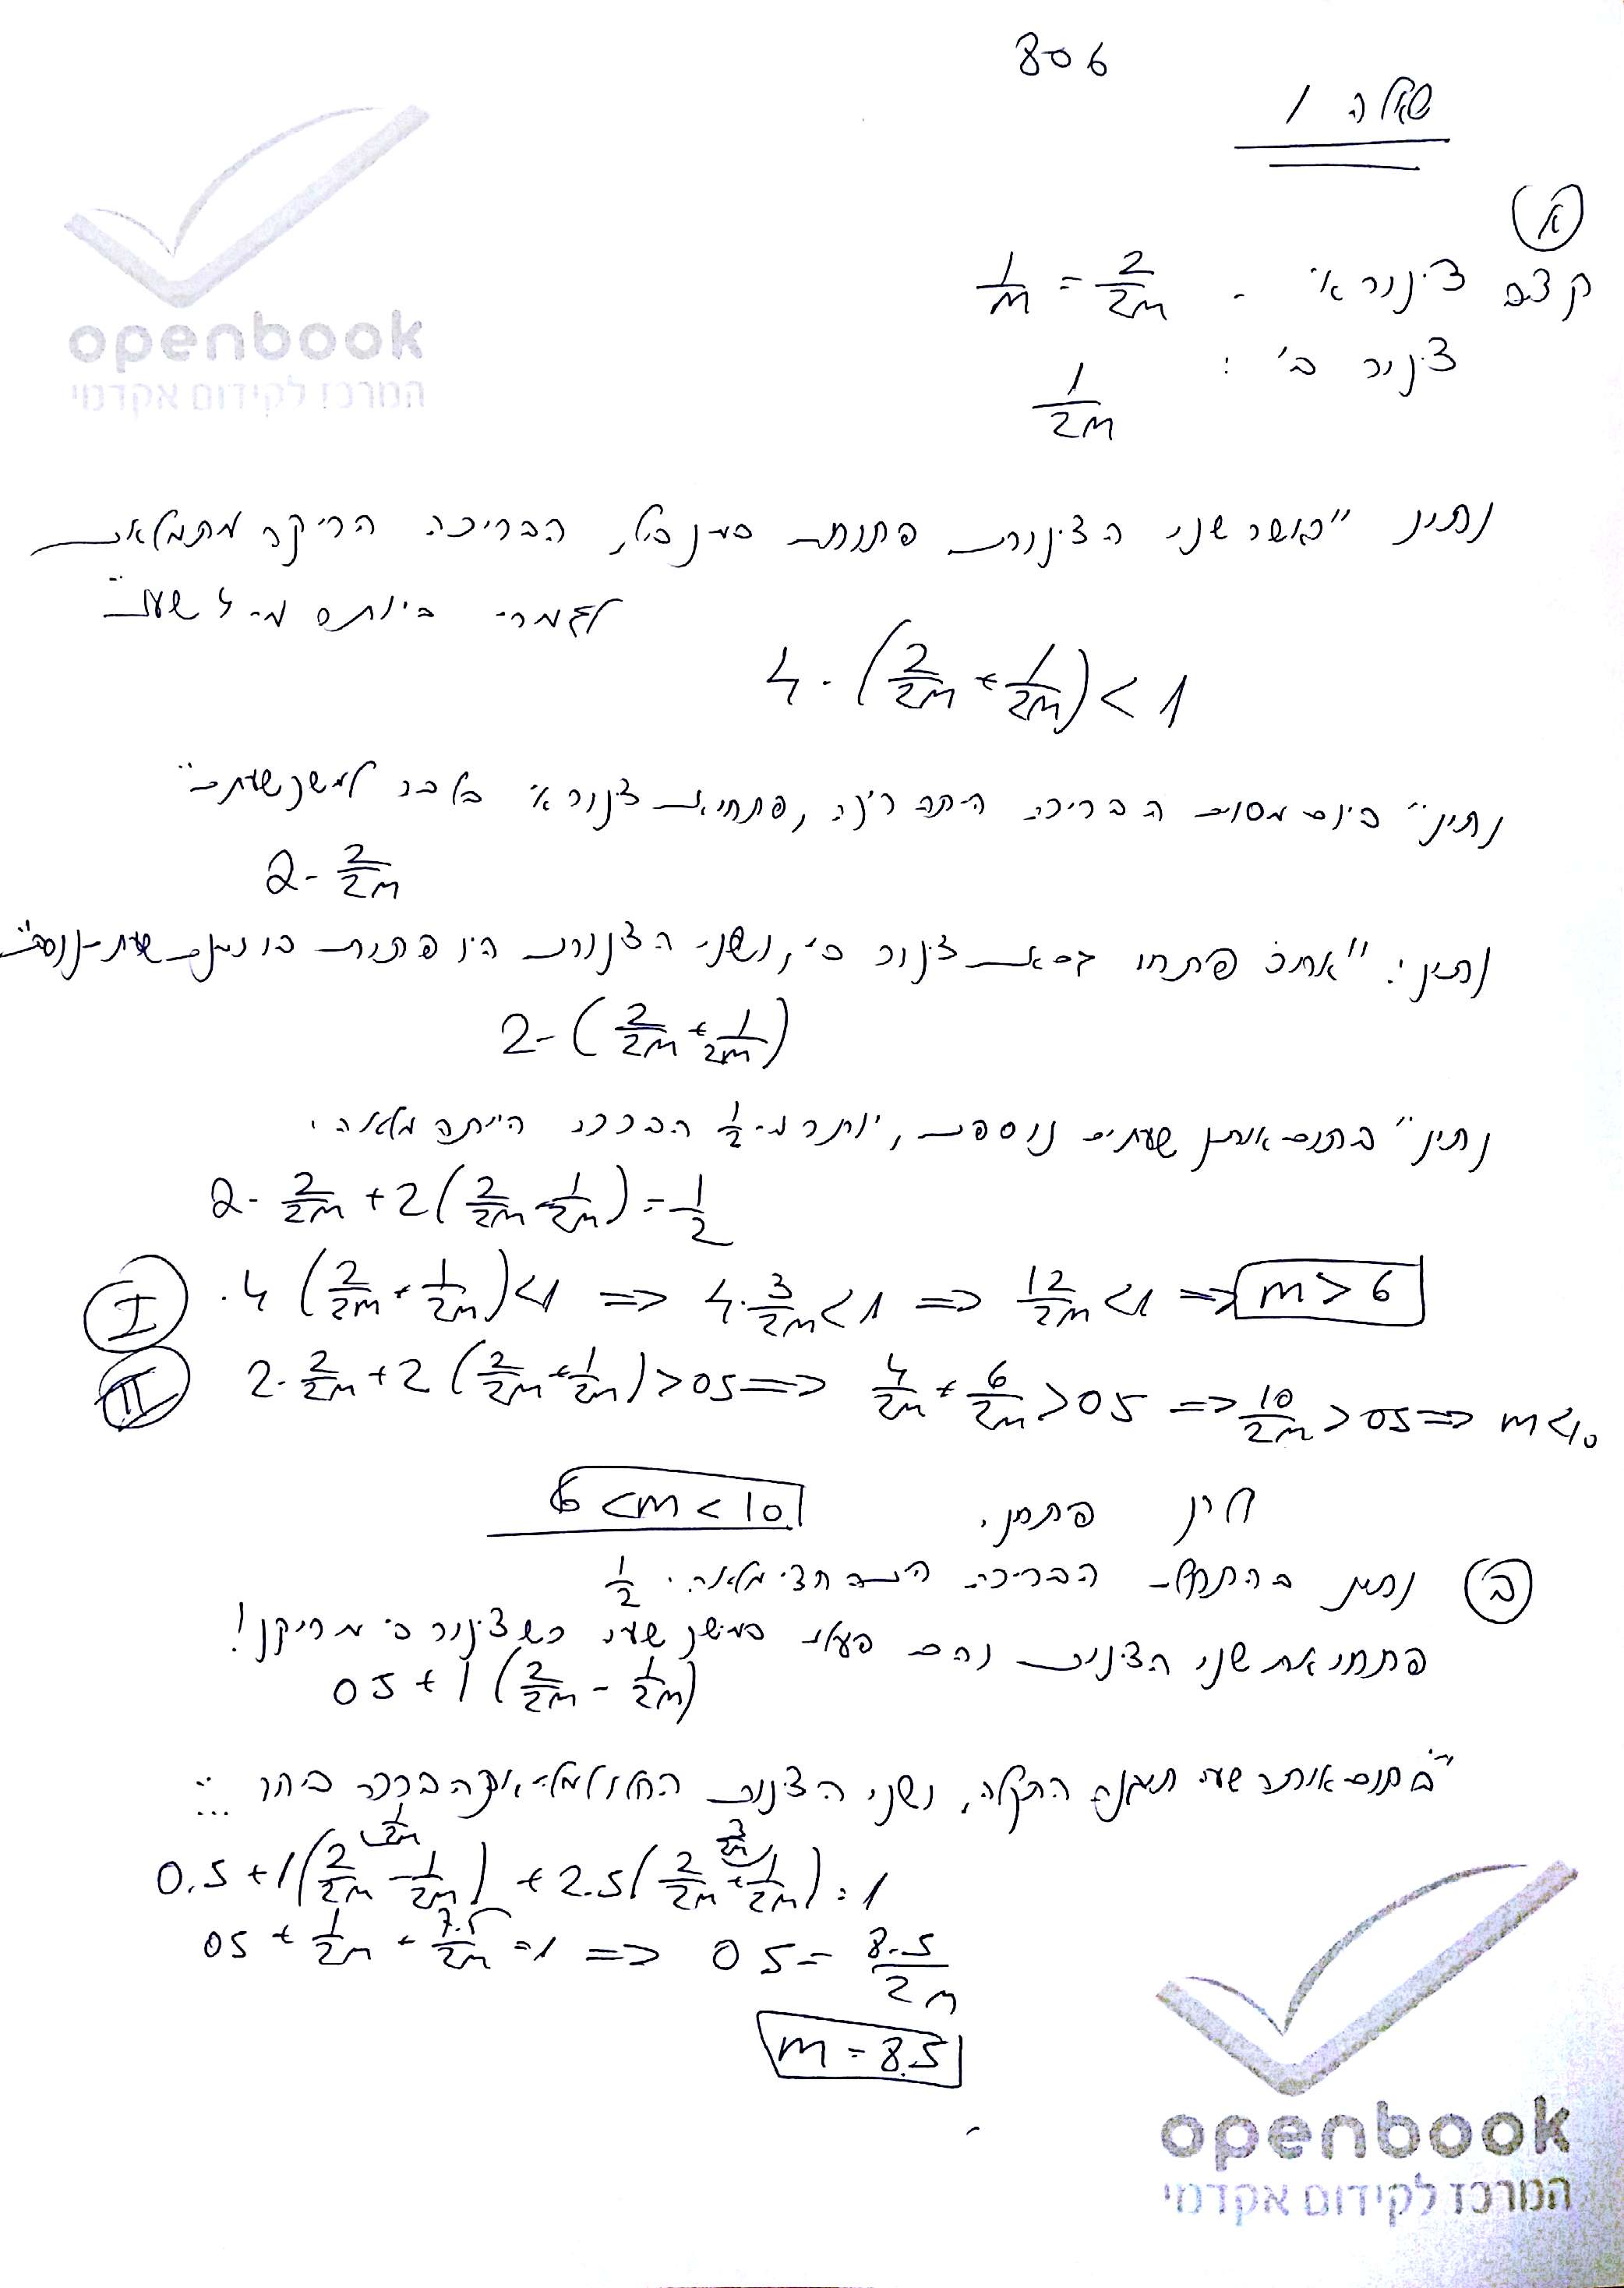 806
שאלה 1
א
קצב צינור א' - 1/m = 2/2m
צינור ב' : 1/2m
openbook
המרכז לקידום אקדמי
נתון "כאשר שני הצינורות פתוחים בו זמנית, הבריכה הריקה מתמלאת
לגמרי ביותר מ-4 שעות"
4·(2/2m + 1/2m) < 1
נתון "ביום מסוים הבריכה היתה ריקה, פתחו את צינור א' בלבד למשך שעתיים"
2·2/2m
נתון: "אח"כ פתחו גם את צינור ב', ושני הצינורות היו פתוחים בו זמנית שעתיים נוספות"
2·(2/2m + 1/2m)
נתון "בתום אותן שעתיים נוספות, יותר מ-1/2 הבריכה הייתה מלאה.
2·2/2m + 2(2/2m 1/2m) = 1/2
I ·4(2/2m + 1/2m)<1 => 4·3/2m<1 => 12/2m<1 => m>6
II 2·2/2m + 2(2/2m + 1/2m)>05 => 4/2m + 6/2m >05 => 10/2m >05 => m<10
6<m<10
ב נתון בהתחלה הבריכה היתה חצי מלאה. 1/2
פתחו את שני הצינורות והם פעלו במשך שעה כשצינור ב' מרוקן!
05+1(2/2m − 1/2m)
"בתום אותה שעה תוקנה התקלה, ושני הצינורות החלו למלא את הבריכה ביחד ...
1/2m 3/2m
0.5+1(2/2m − 1/2m) + 2.5(2/2m + 1/2m) = 1
05 + 1/2m + 7.5/2m = 1 => 05 = 8.5/2m
m = 8.5
openbook
המרכז לקידום אקדמי